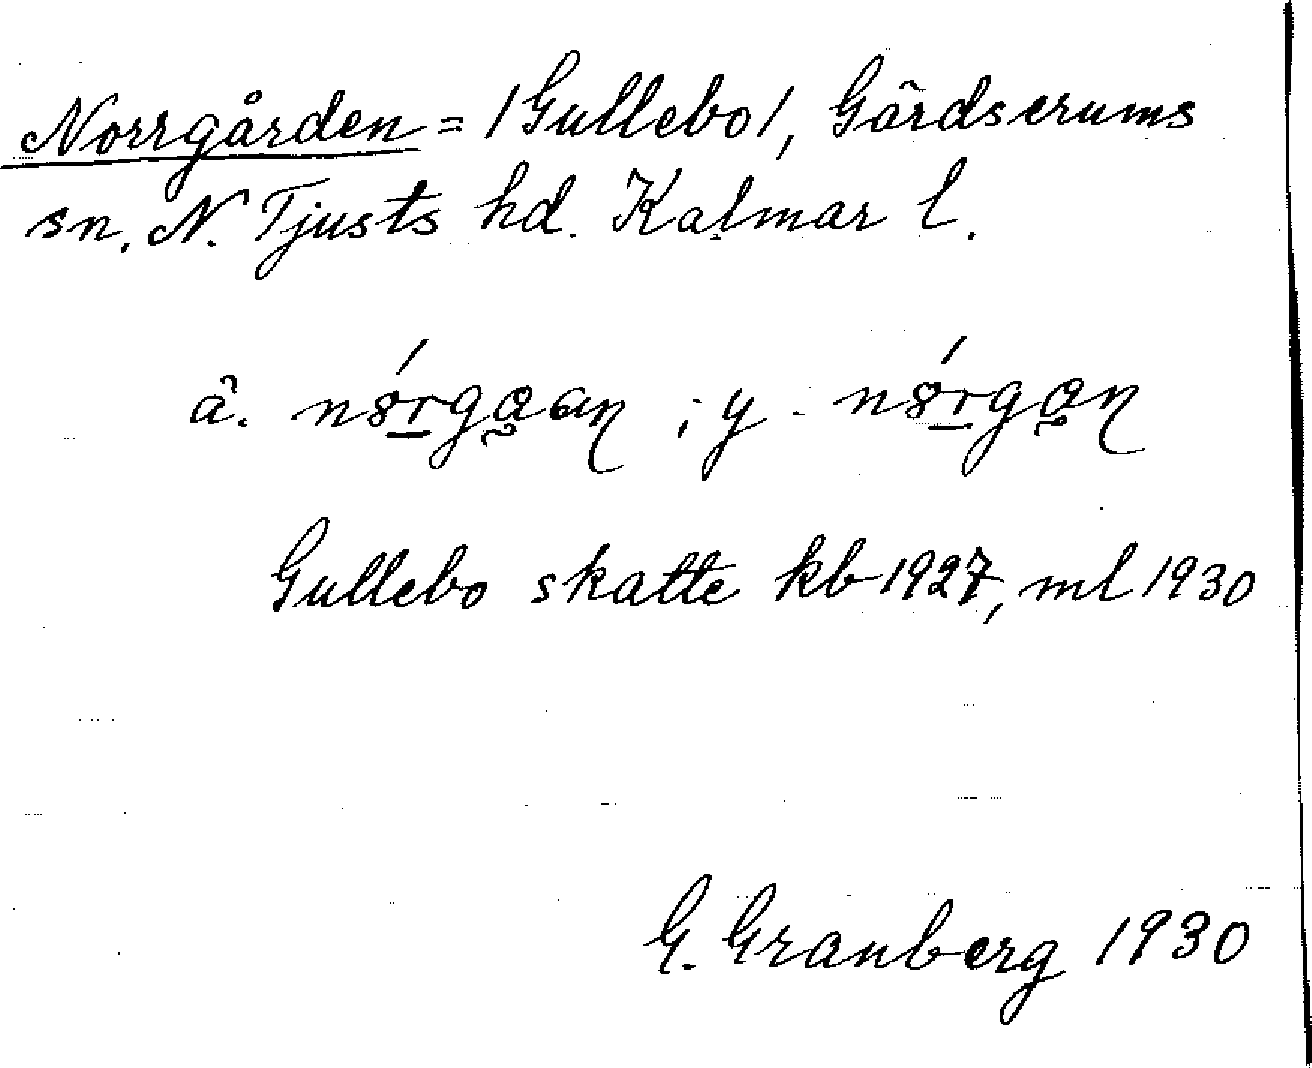 Norrgården = /Gullebo/, Gärdserums
sn. N. Tjusts hd. Kalmar l.
ä. nórgaan ; y. nórgan
Gullebo skatte kb 1927, ml 1930
G. Granberg 1930